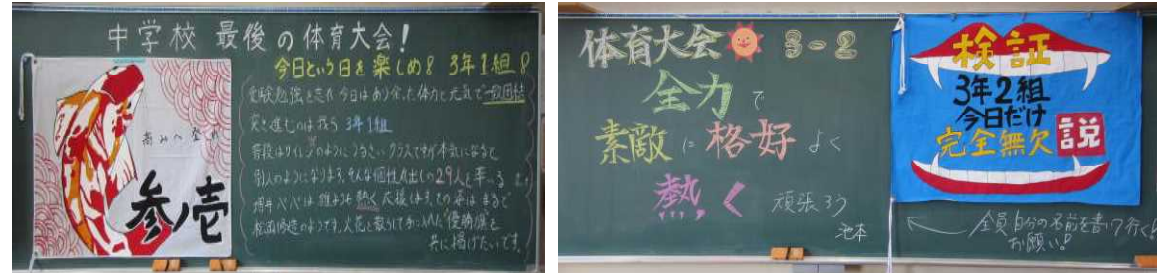 中学校 最後の体育大会!
今日という日を楽しめ! 3年1組!
高みへ登れ
参ノ壱
受験勉強を忘れ 今日はあり余った体力と元気で一致団結
突き進むのは我ら 3年1組
普段は のように うるさいクラスですが本気になると
別人のようになります。そんな個性 出しの29人を率いる
は誰よりも熱く 応援はまるで
松岡修造のようです。火花を散らして 優勝旗を
共に掲げたいです
体育大会 3-2
全力で
素敵に格好よく
熱く 頑張ろう
池本
検証
3年2組
今日だけ
完全無欠説
← 全員自分の名前を書いて行く!
お願い!